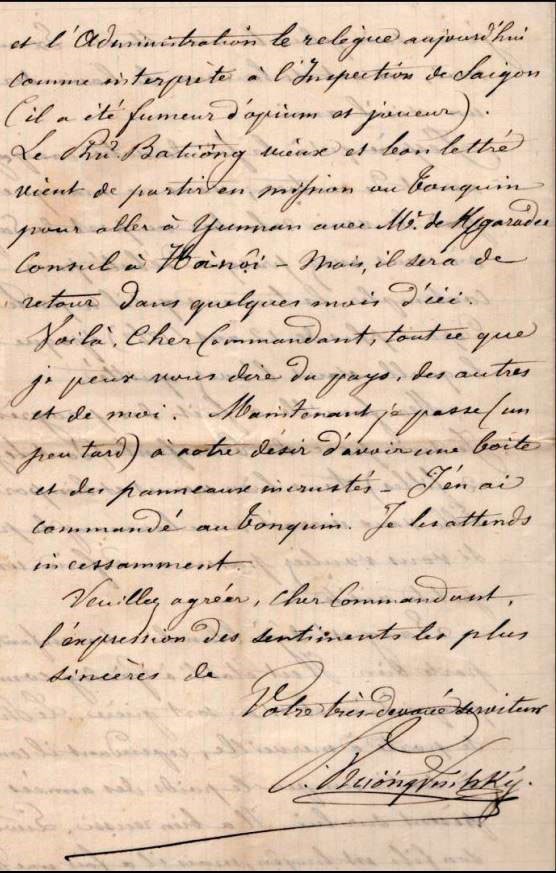 et l'Administration le relègue aujourd'hui
comme interprète à l'Inspection de Saigon
(il a été fumeur d'opium et joueur).
Le Phủ Batường vieux et bon lettré
vient de partir en mission au Tonquin
pour aller à Yunnan avec Mr. de Kgaradec
Consul à Hà-nội – Mais, il sera de
retour dans quelques mois d'ici.
Voilà, Cher Commandant, tout ce que
je peux vous dire du pays, des autres
et de moi. Maintenant je passe (un
peu tard) à votre désir d'avoir une boite
et des panneaux incrustés – J'en ai
commandé au Tonquin. Je les attends
incessamment
Veuillez agréer, Cher Commandant,
l'expression des sentiments les plus
sincères de
Votre très dévoué serviteur
P. Trương Vĩnh Ký.